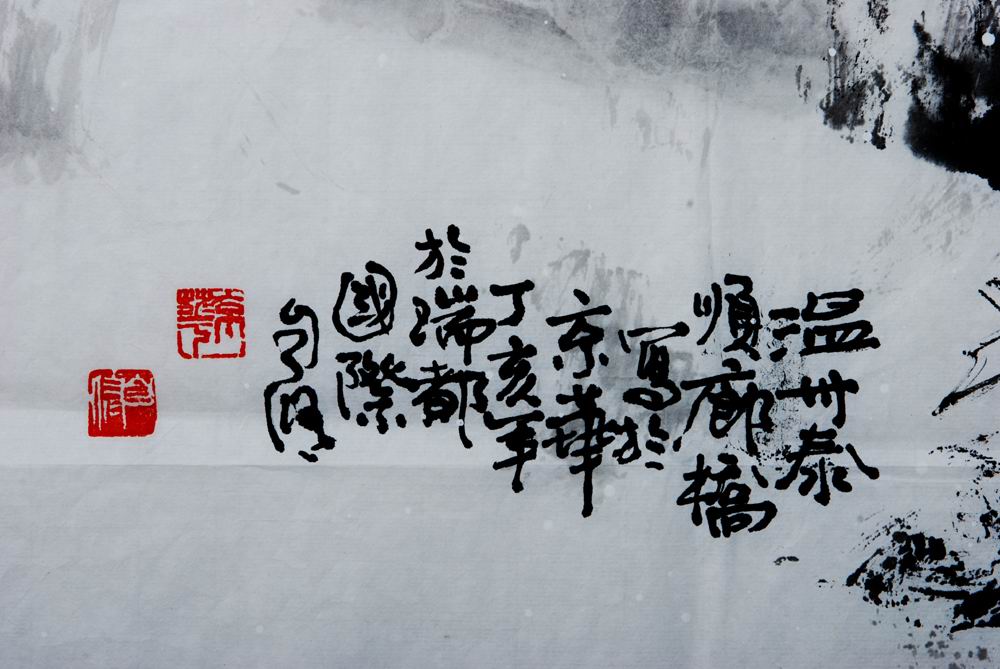 温州泰
順廊橋
寫於
京華
丁亥年
於瑞都
國際